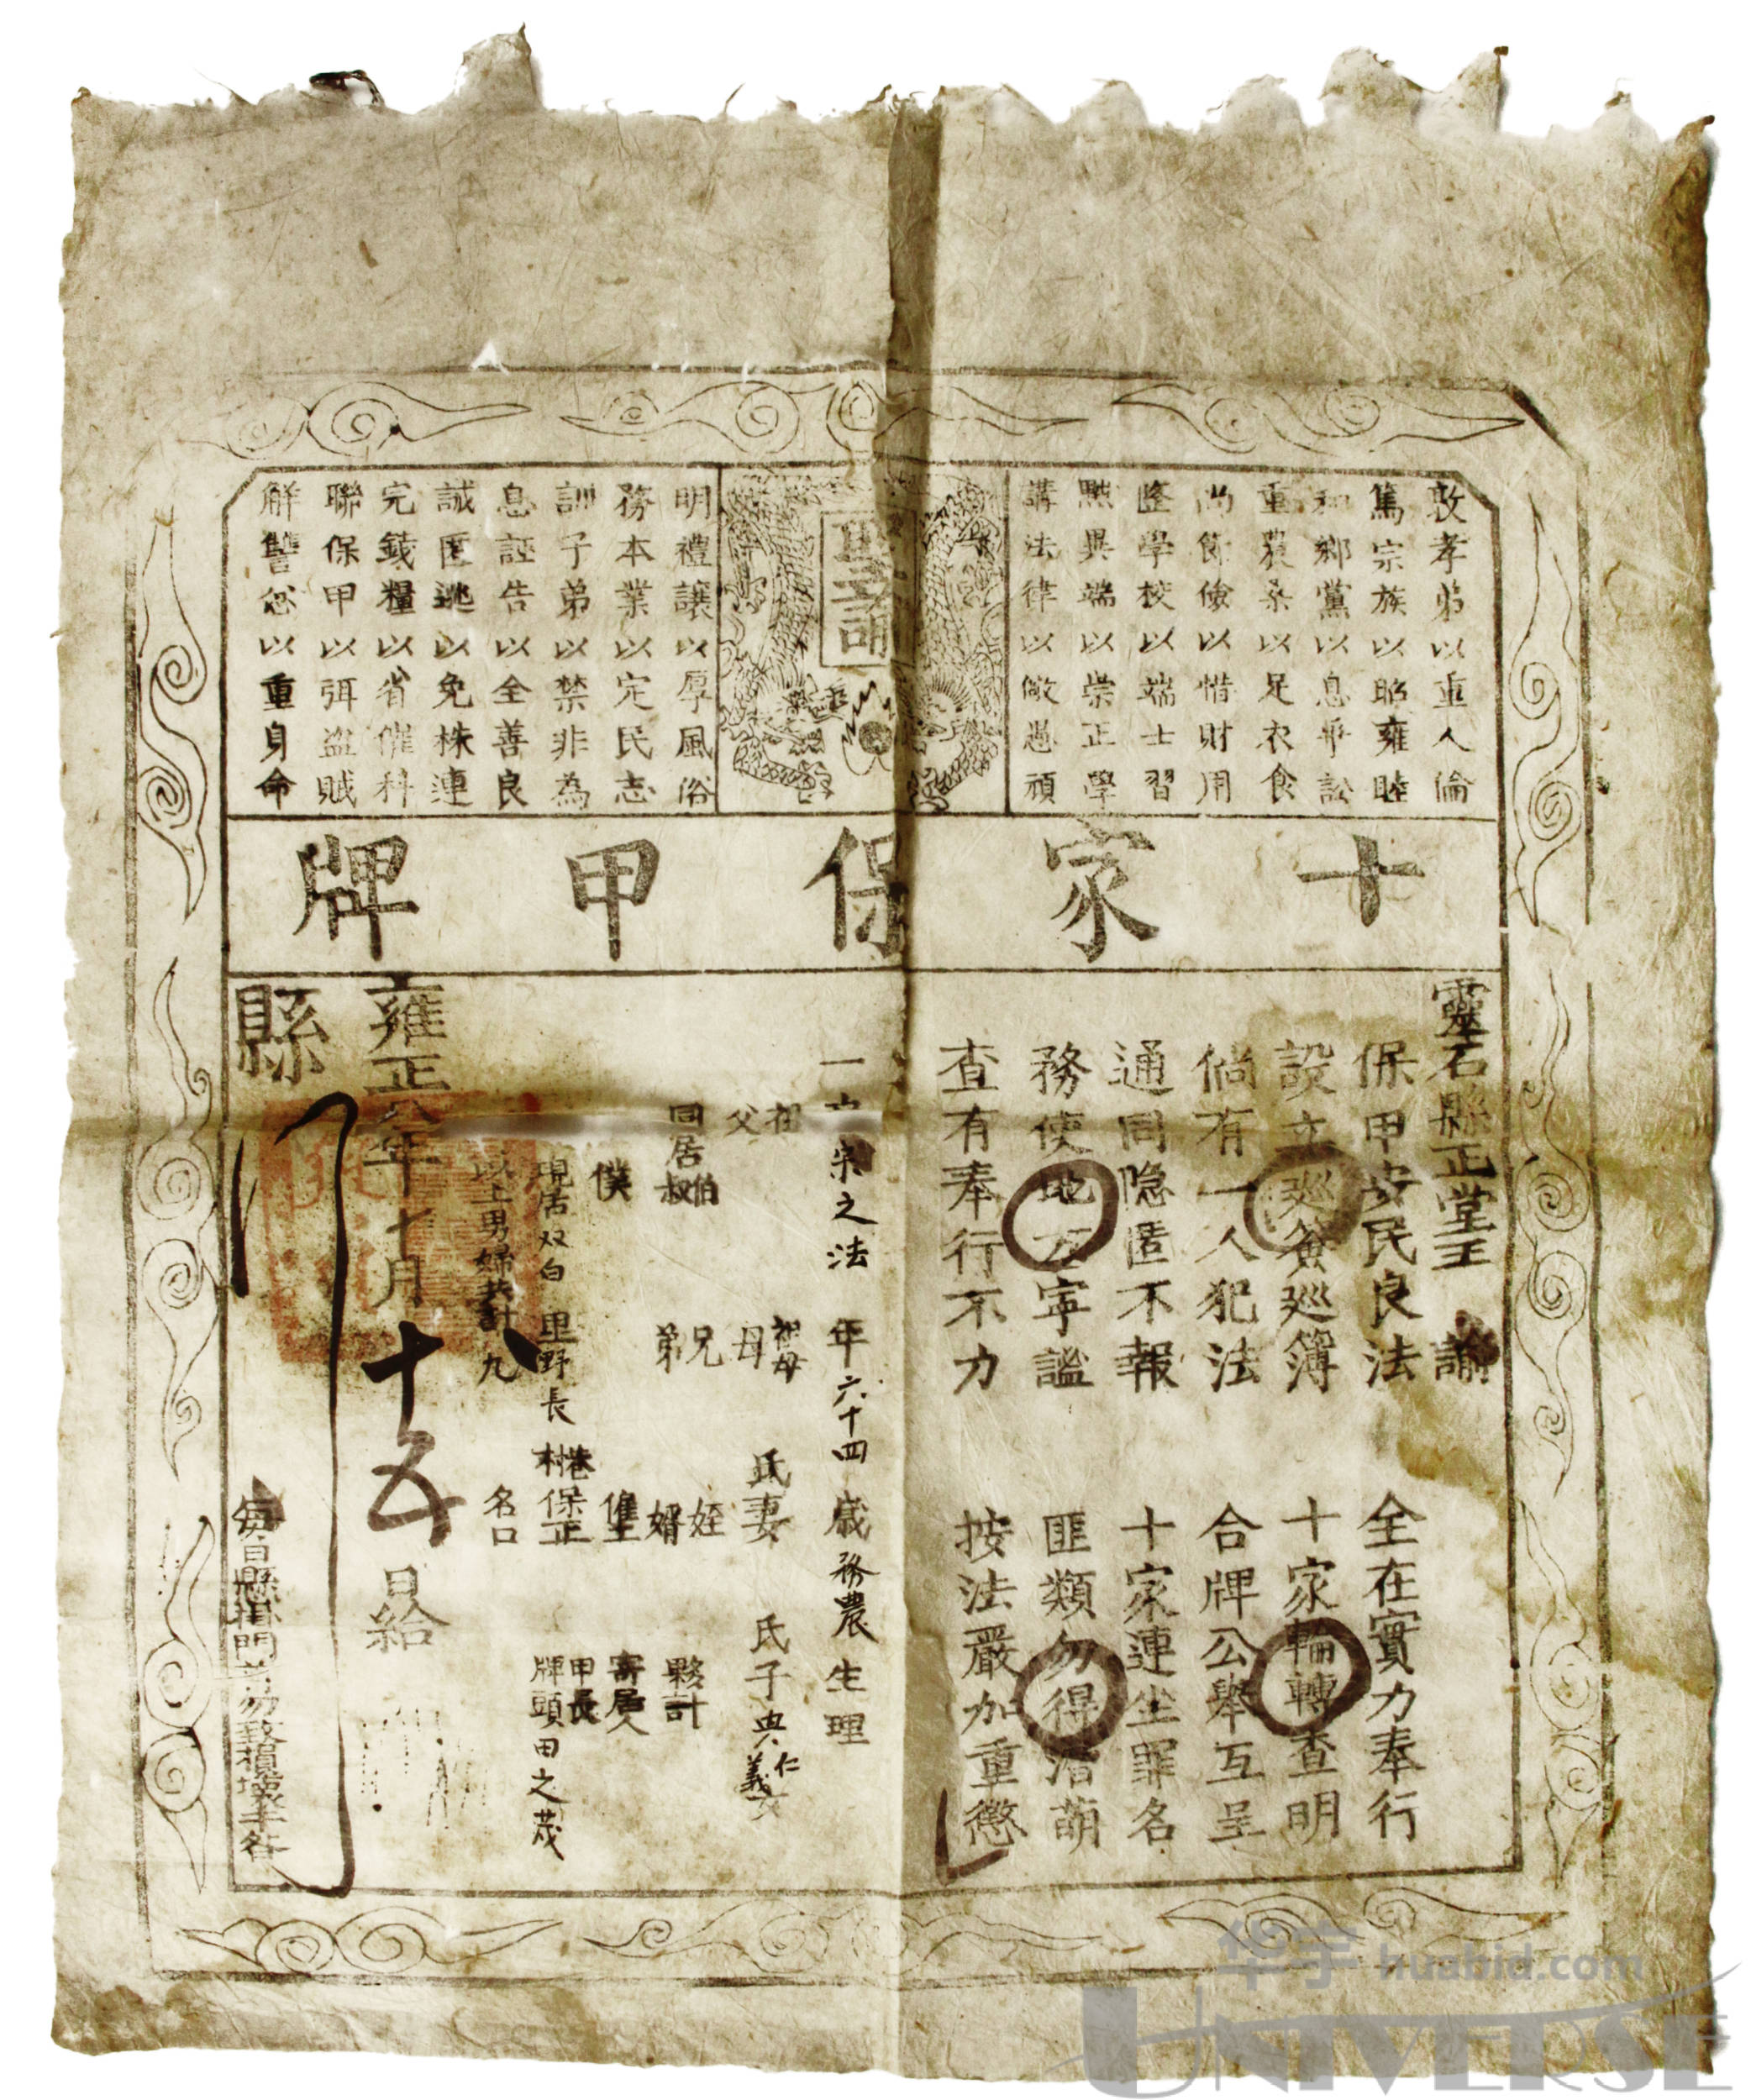 敦孝弟以重人倫
篤宗族以昭雍睦
和鄉黨以息爭訟
重農桑以足衣食
尚節儉以惜財用
隆學校以端士習
黜異端以崇正學
講法律以儆愚頑
聖諭
明禮讓以厚風俗
務本業以定民志
訓子弟以禁非為
息誣告以全善良
誡匿逃以免株連
完錢糧以省催科
聯保甲以弭盜賊
解讐忿以重身命
十家保甲牌
靈石縣正堂王 諭
保甲安民良法 全在實力奉行
設立巡簽巡簿 十家輪轉查明
倘有一人犯法 合牌公舉互呈
通同隐匿不報 十家連坐罪名
務使地方寧謐 匪類勿得潛萌
查有奉行不力 按法嚴加重懲
一 宋之法 年六十四歲務農生理
祖 祖母 氏妻 氏子典仁義女
父 母
同居伯叔 兄弟 姪婿 夥計
僕 寄居人
現居双白里野長村巷保正 甲長牌頭田之茂
以上男婦共計九名口
雍正八年十月十五日給
縣
每日懸掛門首勿致損壞
华宇 huabid.com
UNIVERSE